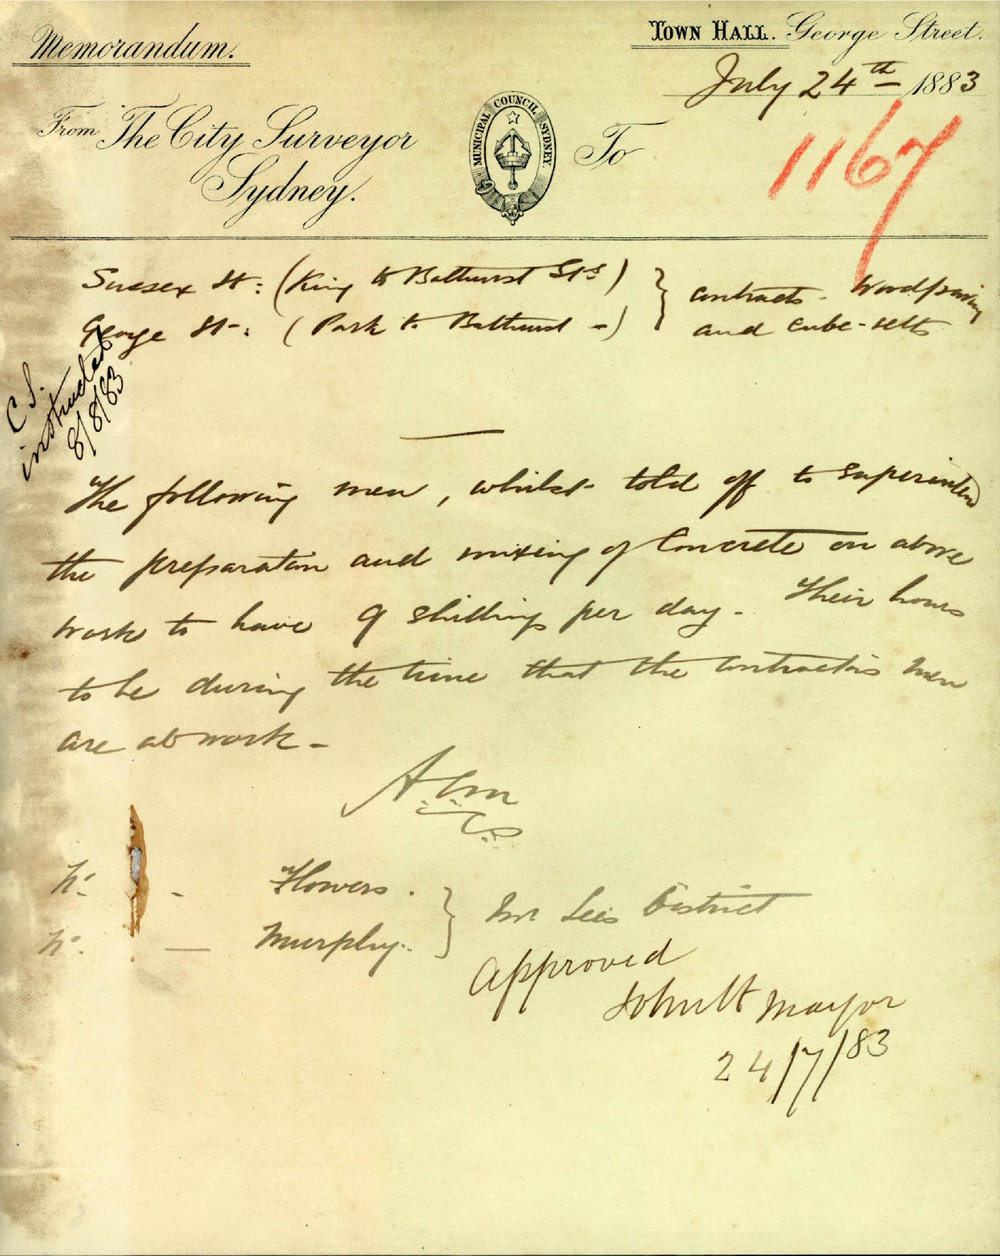 Memorandum.
TOWN HALL. George Street.
July 24th 1883
From The City Surveyor
Sydney.
MUNICIPAL COUNCIL SYDNEY.
To
1167
Sussex St: (King to Bathurst Sts)
George St: (Park to Bathurst -)
contracts - Woodpaving
and cube-setts
C S.
instructed
8/8/83
The following men, whilst told off to superintend
the preparation and mixing of Concrete on above
work to have 9 shillings per day. Their hours
to be during the time that the contractors men
are at work -
- Flowers.
- Murphy.
Mr Lees District
Approved
John H Mayor
24/7/83